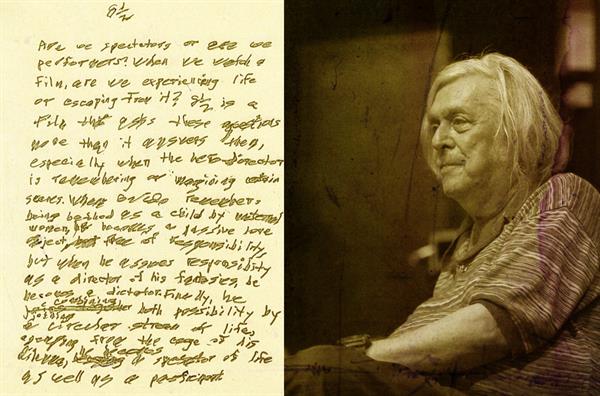 8 1/2
Are we spectators or are we
performers? When we watch a
film, are we experiencing life
or escaping from it? 8 1/2 is a
film that asks these questions
more than it answers them,
especially when the hero-director
is remembering or imagining certain
scenes. When Guido remembers
being bathed as a child by maternal
women, he becomes a passive love
object, free of responsibility,
but when he assumes responsibility
as a director of his fantasies, he
becomes a dictator. Finally, he
combining
joining both possibility by
a circular stream of life,
escaping from the cage of his
dilemma, he becomes a spectator of life
as well as a participant